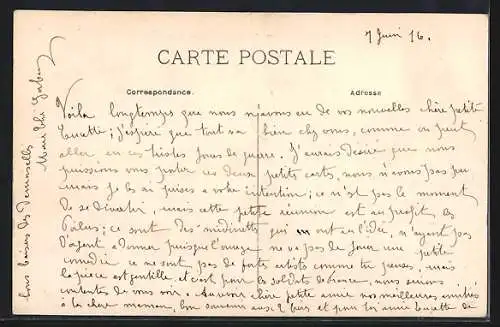 7 Juin 16.
CARTE POSTALE
Correspondance.
Adresse
Voila longtemps que nous n'avons eu de vos nouvelles chère petite
Lucette; j'espère que tout va bien chez vous, comme on peut
aller en ces tristes jours de guerre. J'aurais désiré que nous
puissions vous porter ces deux petits carts, nous n'avons pas pu
mais je les ai prises a votre intention; ce n'est pas le moment
de se divertir, mais cette petite réunion est au profit des
Poilus; ce sont des "midinettes" qui ont eu l'idée, n'ayant pas
d'argent a donner puisque l'ouvrage ne va pas de jouer une petite
comédie ce ne sont pas de fortes artistes comme tu penses, mais
la pièce est gentille et c'est pour les soldats de France, nous serions
contentes de vous voir. Au revoir chère petite amie nos meilleures amitiés
à ta chère maman, bon souvenir aux et pour toi amie Lucette de
tous baisers des demoiselles